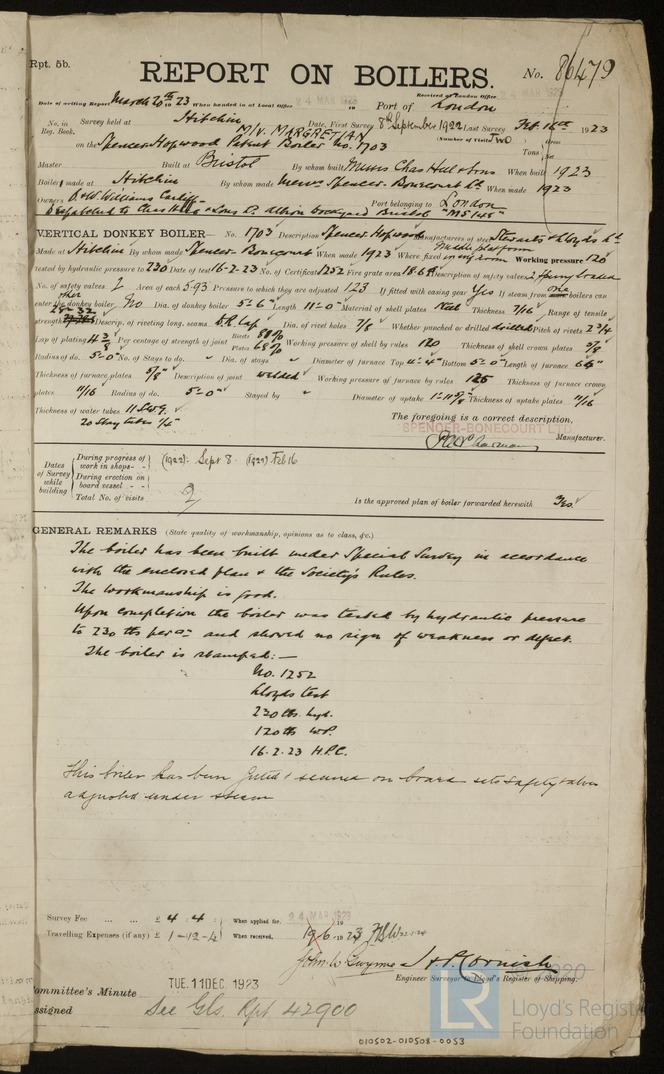 Rpt. 5b.
REPORT ON BOILERS.
No. 86479
Received at London Office
Date of writing Report March 20th 23 When handed in at Local Office 24 MAR 1923 Port of London
No. in Reg. Book. Survey held at Hitchin Date, First Survey 8th September 1922 Last Survey Feb. 16th 1923
(Number of Visits Two
on the Spencer Hopwood Patent Boiler No. 1703 M/V. MARGRETIAN Tons Gross Net
Master Built at Bristol By whom built Messrs Chas Hill & Sons When built 1923
Boiler made at Hitchin By whom made Messrs Spencer-Bonecourt Ld When made 1923
Owners O. & W. Williams Cardiff Port belonging to London
Despatched to Chas Hill & Sons Ld. Albion Dockyard Bristol "MS 145"
VERTICAL DONKEY BOILER— No. 1703 Description Spencer Hopwood Manufacturers of steel Stewarts & Lloyds Ld
Made at Hitchin By whom made Spencer-Bonecourt When made 1923 Where fixed Middle platform in eng room Working pressure 120
tested by hydraulic pressure to 230 Date of test 16-2-23 No. of Certificate 1252 Fire grate area Description of safety valves 2 Spring loaded
No. of safety valves 2 Area of each 5.93 Pressure to which they are adjusted 123 If fitted with easing gear Yes If steam from one other boilers can
enter the donkey boiler No Dia. of donkey boiler 5'-6" Length 11'-0" Material of shell plates Steel Thickness 7/16 Range of tensile
strength 28-32 Descrip. of riveting long. seams D.R. Lap Dia. of rivet holes 7/8 Whether punched or drilled drilled Pitch of rivets 2 3/4
Lap of plating Per centage of strength of joint Rivets Plates 68% Working pressure of shell by rules 120 Thickness of shell crown plates 5/8
Radius of do. 5'-0" No. of Stays to do. " Dia. of stays " Diameter of furnace Top 4'-4" Bottom 5'-0" Length of furnace
Thickness of furnace plates 5/8" Description of joint welded Working pressure of furnace by rules 125 Thickness of furnace crown
plates 11/16 Radius of do. 5'-0" Stayed by " Diameter of uptake Thickness of uptake plates 11/16
Thickness of water tubes 11 SWG.
20 Stay tubes
The foregoing is a correct description,
SPENCER-BONECOURT LTD.
Manufacturer.
Dates of Survey while building
During progress of work in shops- - (1922). Sept 8. (1923) Feb 16
During erection on board vessel - -
Total No. of visits 2
Is the approved plan of boiler forwarded herewith Yes.
GENERAL REMARKS (State quality of workmanship, opinions as to class, &c.)
The boiler has been built under Special Survey in accordance
with the enclosed plan & the Society's Rules.
The workmanship is good.
Upon completion the boiler was tested by hydraulic pressure
to 230 lbs per □" and showed no sign of weakness or defect.
The boiler is stamped:—
No. 1252
Lloyds test
230 lbs. hyd.
120 lbs WP.
16.2.23 H.P.C.
This boiler has been fitted & secured on board its safety valves
adjusted under steam
Survey Fee ... ... £ 4 : 4 : When applied for, 24 MAR 1923
Travelling Expenses (if any) £ 1-12-4 When received, 19/6 1923
John W Gwynne & H. P. Cornish
Engineer Surveyor to Lloyd's Register of Shipping.
Committee's Minute TUE. 11 DEC. 1923
Assigned See Gls. Rpt 42900
LR
Lloyd's Register
Foundation
010502-010508-0053